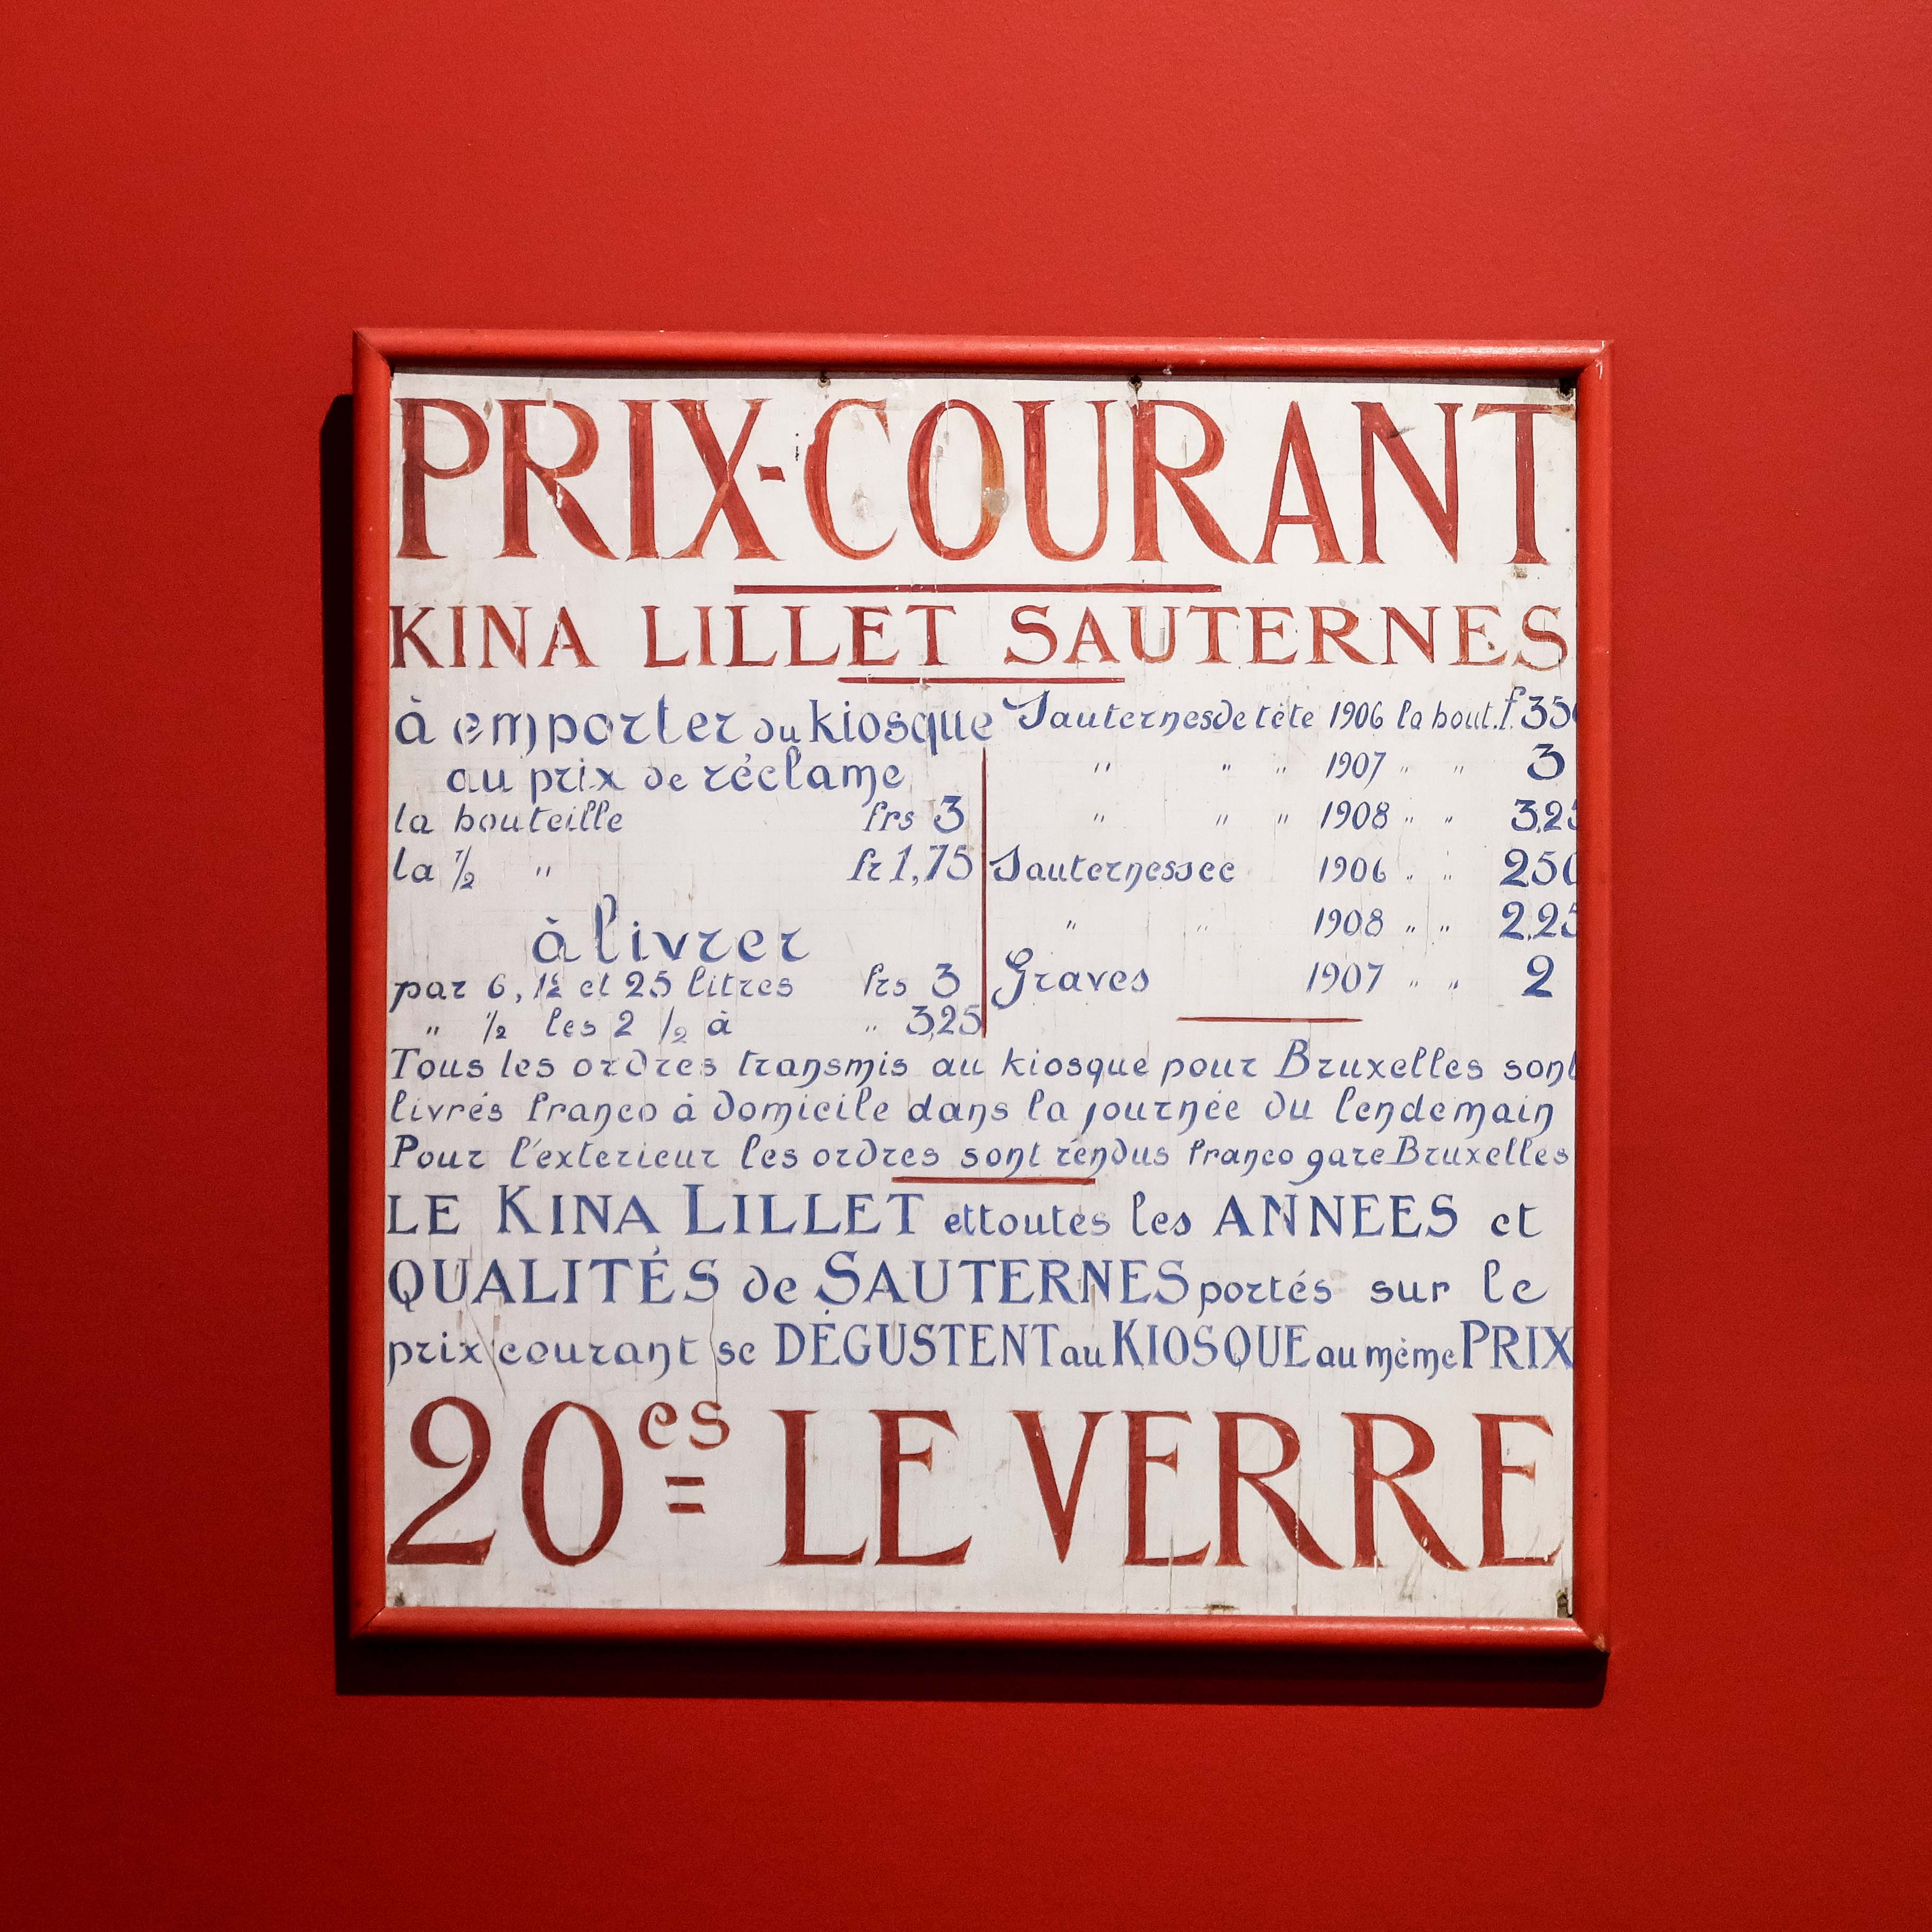 PRIX-COURANT
KINA LILLET SAUTERNES
à emporter du kiosque
au prix de réclame
la bouteille frs 3
la 1/2 " fr 1,75
à livrer
par 6, 12 et 25 litres frs 3
" 1/2 les 2 1/2 à " 3,25
Sauternes de tête 1906 la bout. f. 350
" " " 1907 " " 3
" " " 1908 " " 3,25
Sauternes sec 1906 " " 250
" " 1908 " " 2,25
Graves 1907 " " 2
Tous les ordres transmis au kiosque pour Bruxelles sont
livrés franco à domicile dans la journée du lendemain
Pour l'éxterieur les ordres sont rendus franco gare Bruxelles
LE KINA LILLET et toutes les ANNEES et
QUALITÉS de SAUTERNES portés sur le
prix courant se DÉGUSTENT au KIOSQUE au même PRIX
20es = LE VERRE